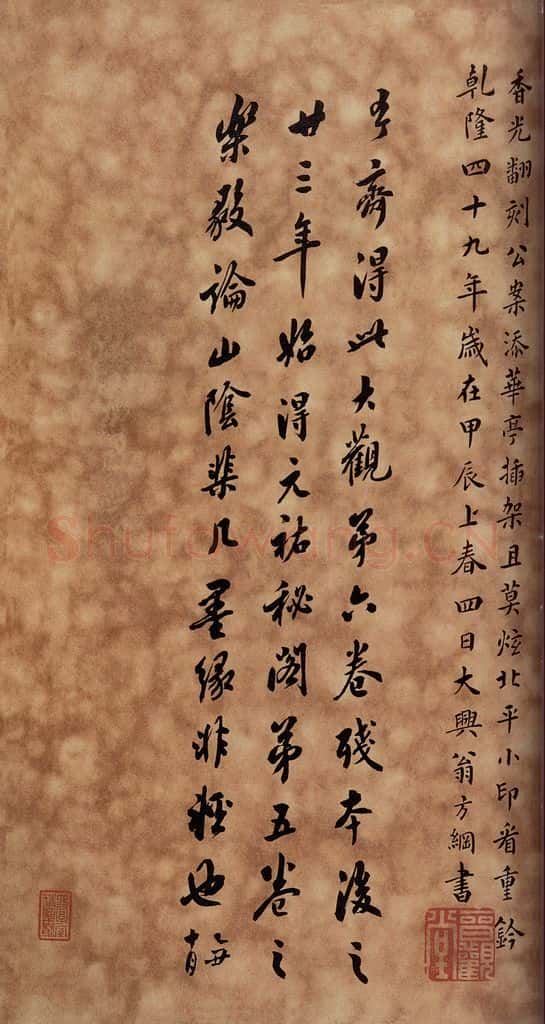 香光翻刻公案添華亭插架且莫炫北平小印看重鈐
乾隆四十九年歲在甲辰上春四日大興翁方綱書
齋得此大觀第六卷殘本後之
廿三年始得元祐秘閣第五卷之
樂毅論山陰棐几墨緣非輕也
Shufawang.CN